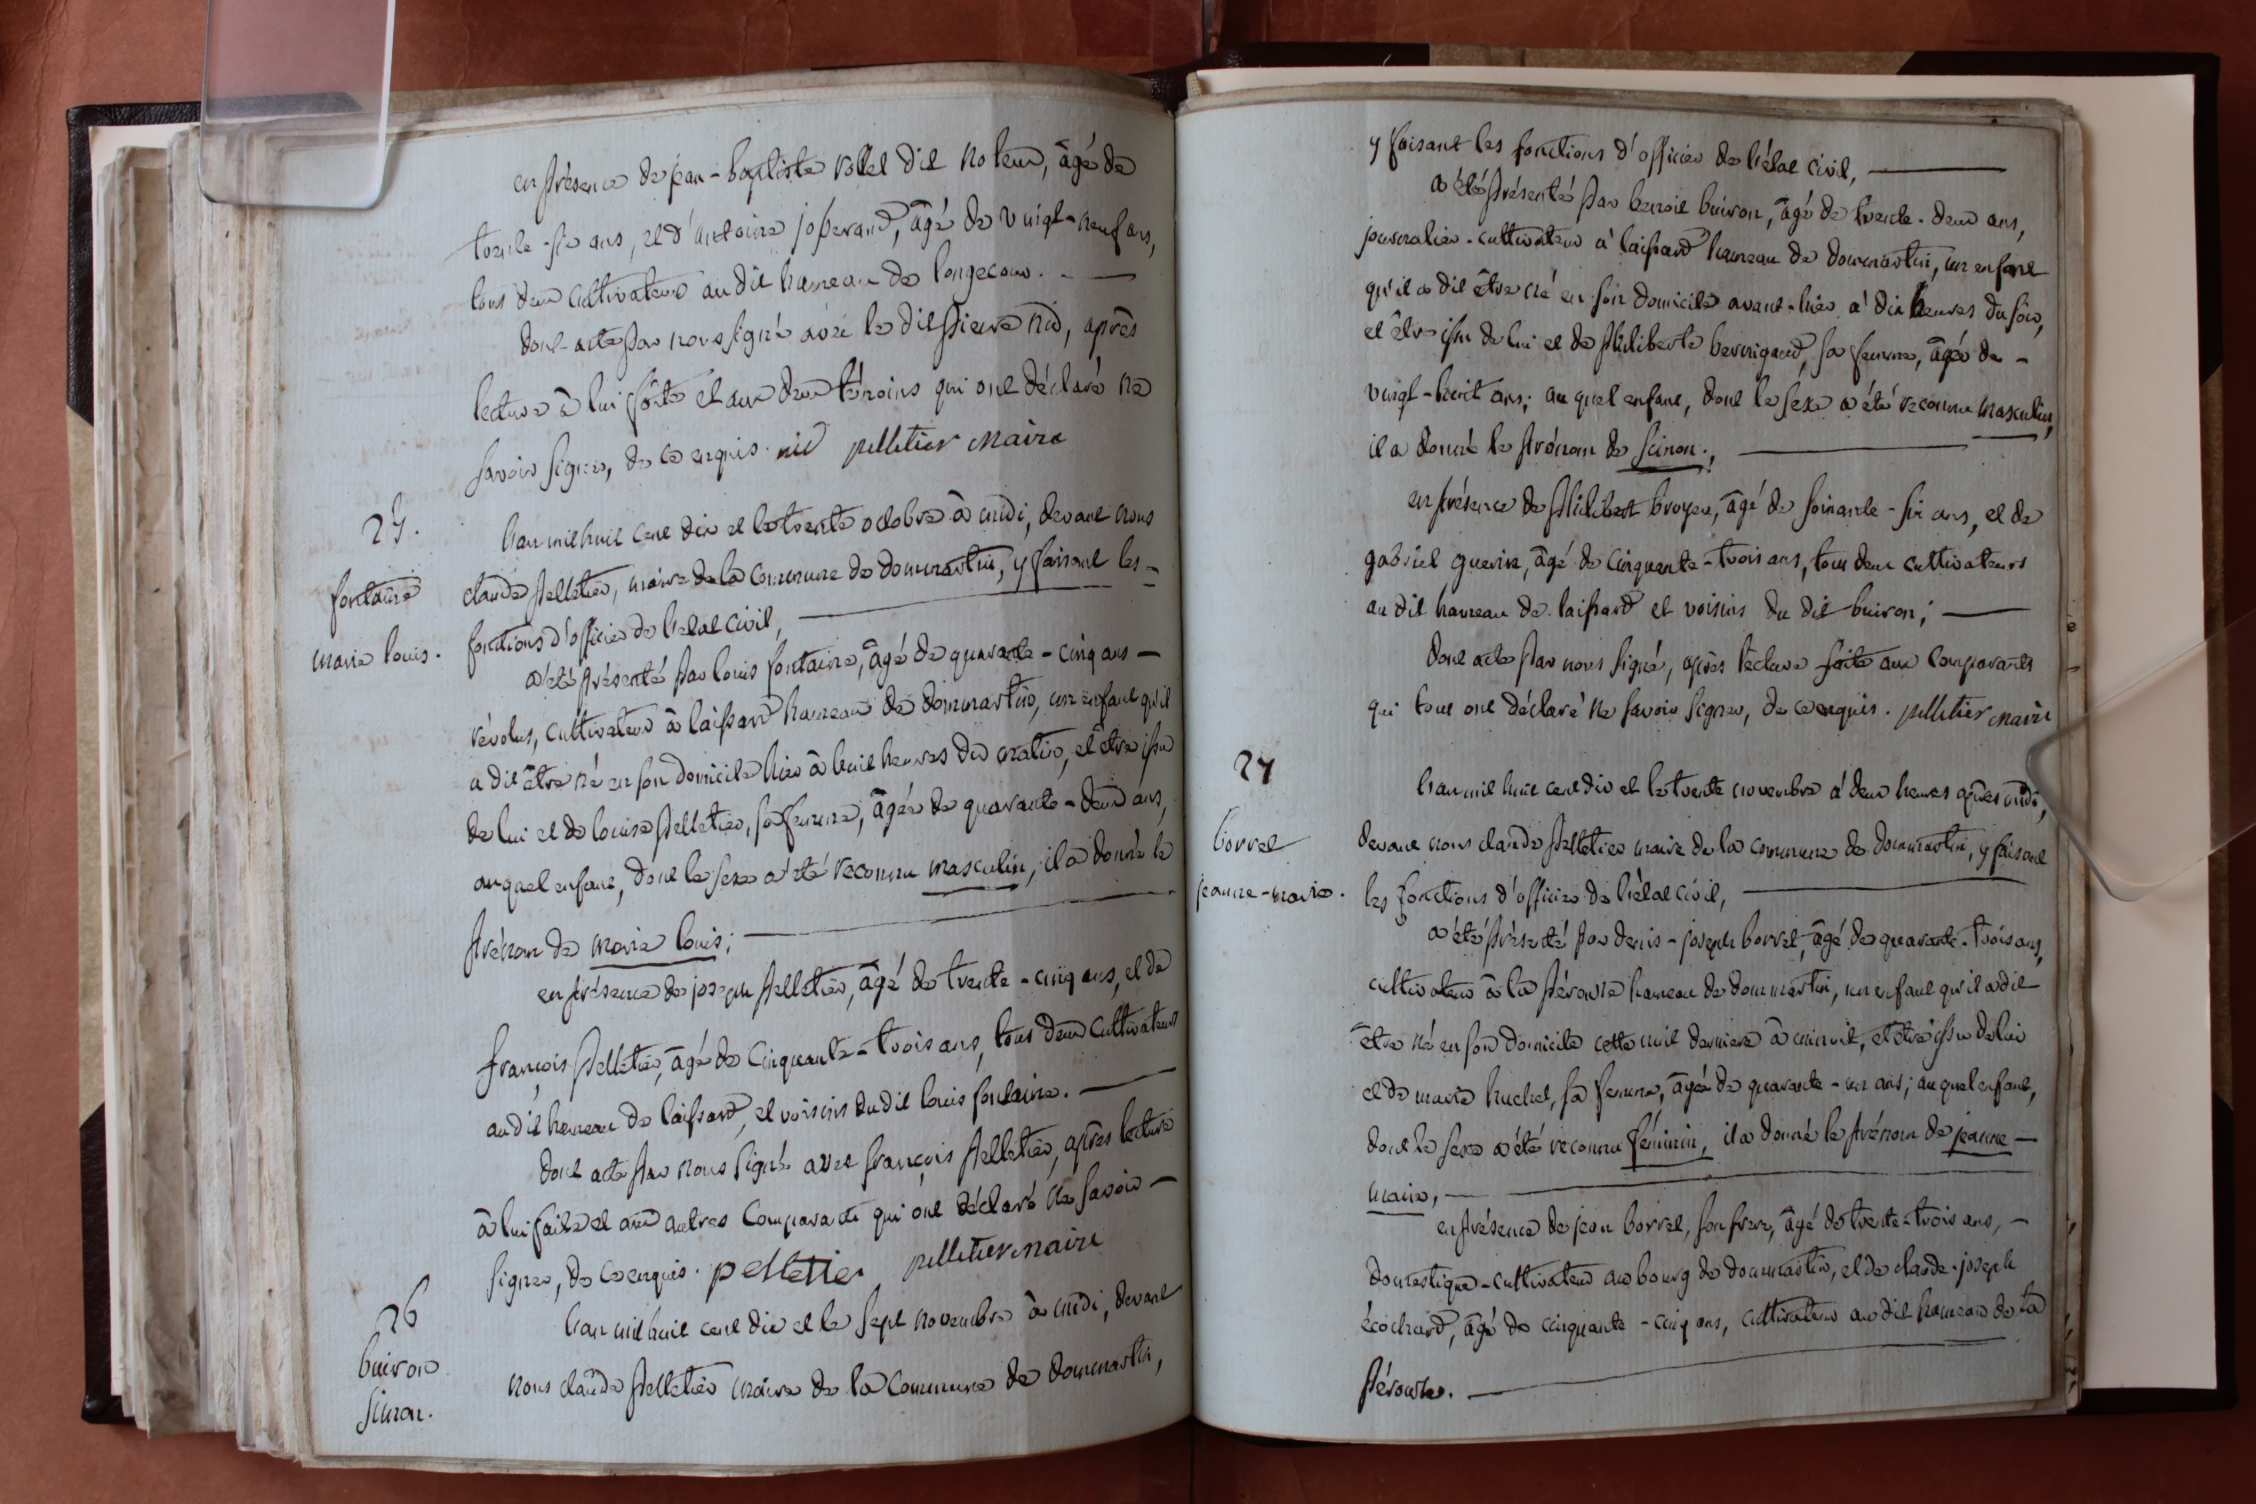 en présence de jean-baptiste vollet dit noleur, âgé de
trente-six ans, et d'antoine josserand, âgé de vingt-neuf ans,
tous deux cultivateurs au dit hameau de longecour.
dont acte par nous signé avec le dit pierre nid, après
lecture à lui faite et aux deux témoins qui ont déclaré ne
savoir signer, de ce enquis. nid pelletier maire
25.
fontaine
marie louis.
l'an mil huit cent dix et le trente octobre à midi, devant nous
claude pelletier, maire de la commune de dommartin, y faisant les
fonctions d'officier de l'état civil,
a été présenté par louis fontaine, âgé de quarante-cinq ans
révolus, cultivateur à laissard hameau de dommartin, un enfant qu'il
a dit être né en son domicile hier à huit heures du matin, et être issu
de lui et de louise pelletier, sa femme, âgée de quarante-deux ans,
auquel enfant, dont le sexe a été reconnu masculin, il a donné le
prénom de marie louis;
en présence de joseph pelletier, âgé de trente-cinq ans, et de
françois pelletier, âgé de cinquante-trois ans, tous deux cultivateurs
au dit hameau de laissard, et voisins du dit louis fontaine.
dont acte par nous signé avec françois pelletier, après lecture
à lui faite et aux autres comparants qui ont déclaré ne savoir
signer, de ce enquis. pelletier pelletier maire
26
buiron
simon.
l'an mil huit cent dix et le sept novembre à midi, devant
nous claude pelletier maire de la commune de dommartin,
y faisant les fonctions d'officier de l'état civil,
a été présenté par benoit buiron, âgé de trente-deux ans,
journalier-cultivateur à laissard hameau de dommartin, un enfant
qu'il a dit être né en son domicile avant-hier à dix heures du soir,
et être issu de lui et de philiberte bernigaud, sa femme, âgée de
vingt-huit ans; au quel enfant, dont le sexe a été reconnu masculin,
il a donné le prénom de simon;
en présence de philibert broyer, âgé de soixante-six ans, et de
gabriel guerin, âgé de cinquante-trois ans, tous deux cultivateurs
au dit hameau de laissard et voisins du dit buiron;
dont acte par nous signé, après lecture faite aux comparants
qui tous ont déclaré ne savoir signer, de ce enquis. pelletier maire
27
borrel
jeanne-marie.
l'an mil huit cent dix et le trente novembre à deux heures après midi,
devant nous claude pelletier maire de la commune de dommartin, y faisant
les fonctions d'officier de l'état civil,
a été présenté par denis-joseph borrel, âgé de quarante-trois ans,
cultivateur à la pérouse hameau de dommartin, un enfant qu'il a dit
être né en son domicile cette nuit derniere à minuit, et être issu de lui
et de marie huchet, sa femme, âgée de quarante-un ans; au quel enfant,
dont le sexe a été reconnu féminin, il a donné le prénom de jeanne-
marie,
en présence de jean borrel, son frere, âgé de trente-trois ans,
domestique-cultivateur au bourg de dommartin, et de claude-joseph
écochard, âgé de cinquante-cinq ans, cultivateur au dit hameau de la
pérouse.